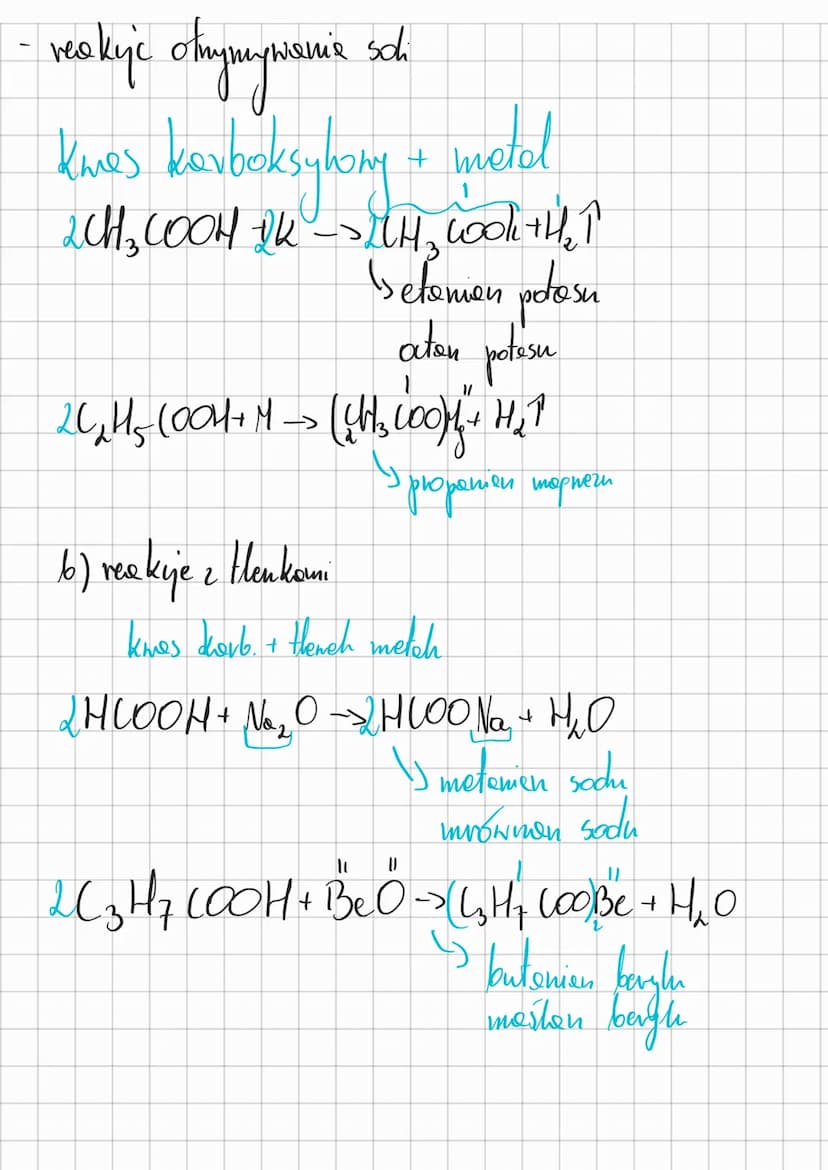 - reakcje otrzymywania soli
kwas karboksylowy + metal
2CH₃COOH + 2K -> 2CH₃COOK + H₂↑
↳ etanian potasu
octan potasu
2C₂H₅COOH + M -> (C₂H₅COO)₂Mg + H₂↑
↳ propanian magnezu
b) reakcje z tlenkami
kwas karb. + tlenek metalu
2HCOOH + Na₂O -> 2HCOONa + H₂O
↳ metanian sodu
mrówczan sodu
2C₃H₇COOH + BeO -> (C₃H₇COO)₂Be + H₂O
↳ butanian berylu
maślan berylu